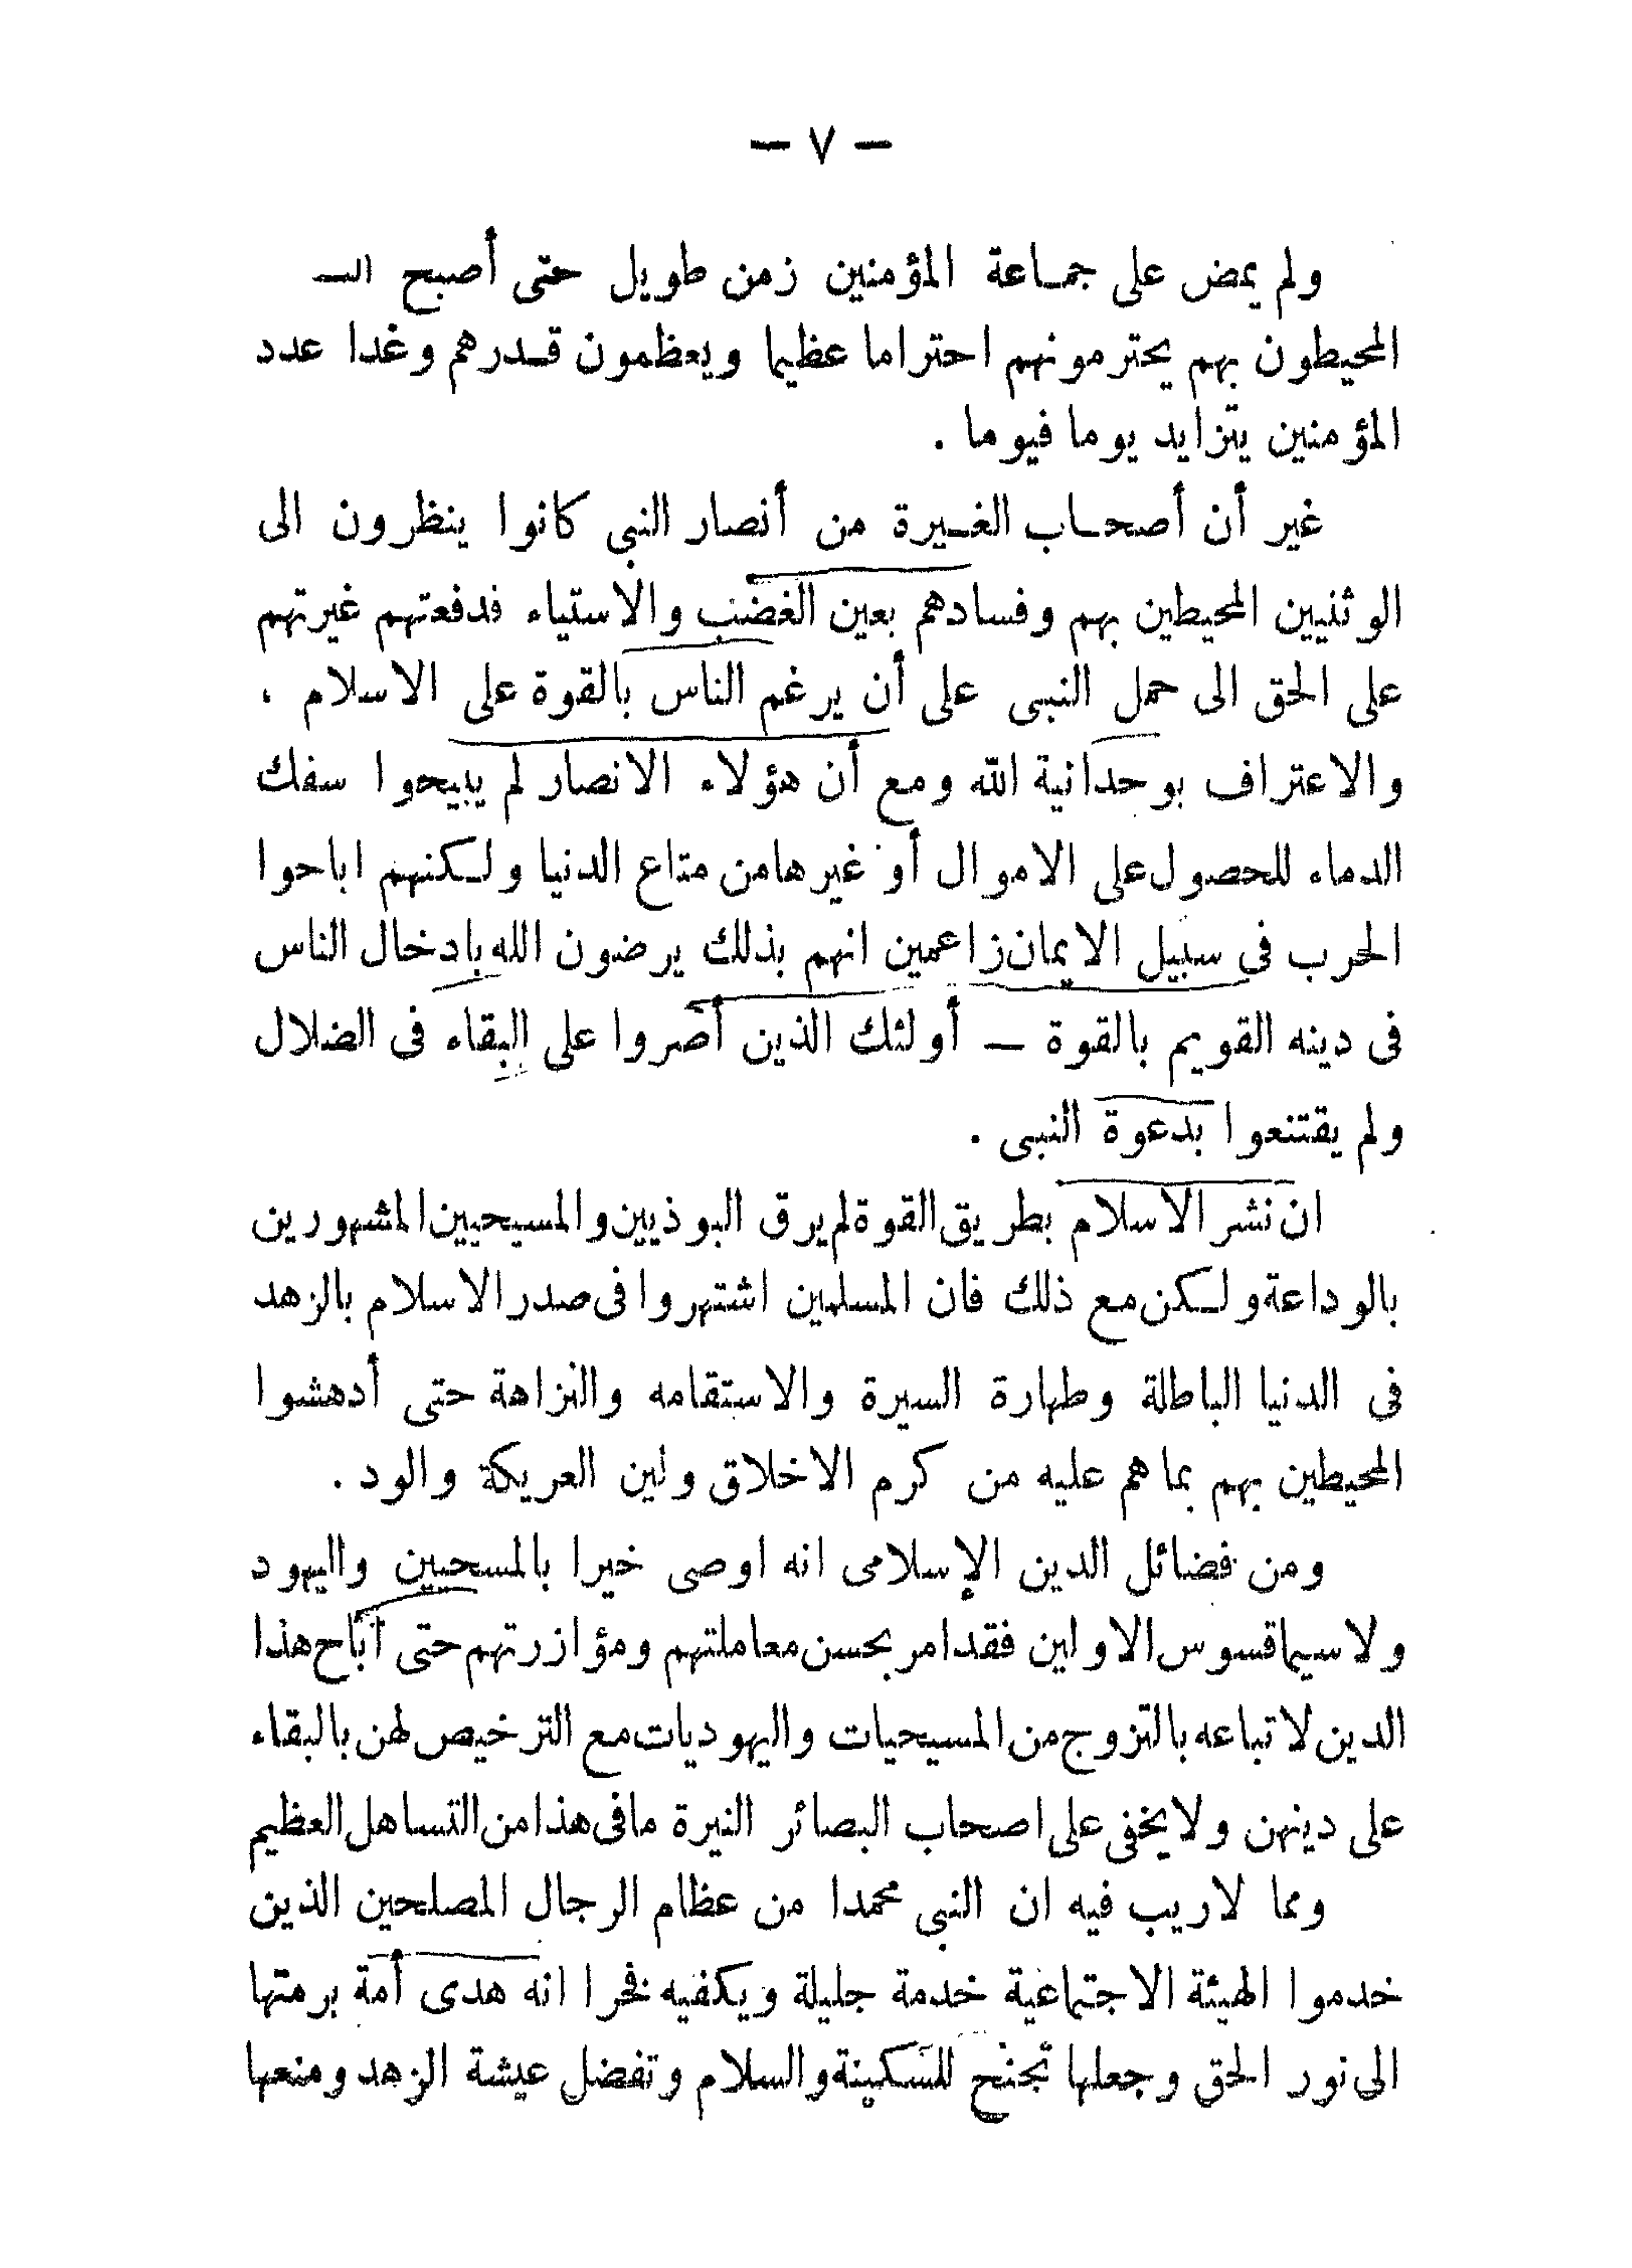 — ٧ —
ولم يمض على جماعة المؤمنين زمن طويل حتى أصبح
المحيطون بهم يحترمونهم احتراما عظيما ويعظمون قدرهم وغدا عدد
المؤمنين يتزايد يوما فيوما .
غير أن أصحاب الغيرة من أنصار النبي كانوا ينظرون الى
الوثنيين المحيطين بهم وفسادهم بعين الغضب والاستياء فدفعتهم غيرتهم
على الحق الى حمل النبى على أن يرغم الناس بالقوة على الاسلام .
والاعتراف بوحدانية الله ومع أن هؤلاء الانصار لم يبيحوا سفك
الدماء للحصول على الاموال أو غيرها من متاع الدنيا ولكنهم اباحوا
الحرب فى سبيل الايمان زاعمين انهم بذلك يرضون الله بادخال الناس
فى دينه القويم بالقوة — أولئك الذين أصروا على البقاء فى الضلال
ولم يقتنعوا بدعوة النبى .
ان نشر الاسلام بطريق القوة لم يرق البوذيين والمسيحيين المشهورين
بالوداعة ولكن مع ذلك فان المسلمين اشتهروا فى صدر الاسلام بالزهد
فى الدنيا الباطلة وطهارة السيرة والاستقامه والنزاهة حتى أدهشوا
المحيطين بهم بما هم عليه من كرم الاخلاق ولين العريكة والود .
ومن فضائل الدين الإسلامى انه اوصى خيرا بالمسحيين واليهود
ولا سيما قسوس الاولين فقد امر بحسن معاملتهم ومؤازرتهم حتى أباح هذا
الدين لاتباعه بالتزوج من المسيحيات واليهوديات مع الترخيص لهن بالبقاء
على دينهن ولا يخفى على اصحاب البصائر النيرة ما فى هذا من التساهل العظيم
ومما لاريب فيه ان النبي محمدا من عظام الرجال المصلحين الذين
خدموا الهيئة الاجتماعية خدمة جليلة ويكفيه فخرا انه هدى أمة برمتها
الى نور الحق وجعلها تجنح للسكينة والسلام وتفضل عيشة الزهد ومنعها